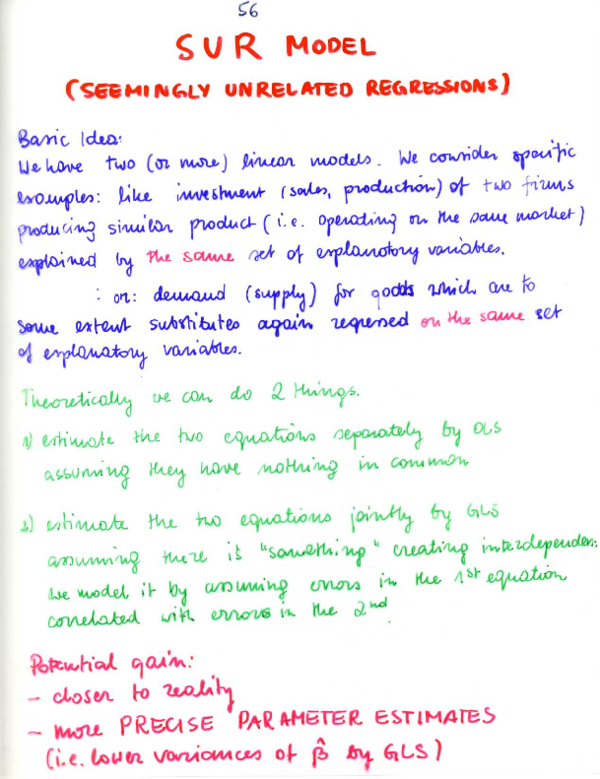 56
SUR MODEL
(SEEMINGLY UNRELATED REGRESSIONS)
Basic Idea:
We have two (or more) linear models. We consider specific
examples: like investment (sales, production) of two firms
producing similar product (i.e. operating on the same market)
explained by the same set of explanatory variables.
: or: demand (supply) for goods which are to
some extent substitutes again regressed on the same set
of explanatory variables.
Theoretically we can do 2 things.
1) estimate the two equations separately by OLS
assuming they have nothing in common
2) estimate the two equations jointly by GLS
assuming there is "something" creating interdependen.:
We model it by assuming errors in the 1st equation
correlated with errors in the 2nd
Potential gain:
- closer to reality
- more PRECISE PARAMETER ESTIMATES
(i.e. lower variances of β̂ by GLS)